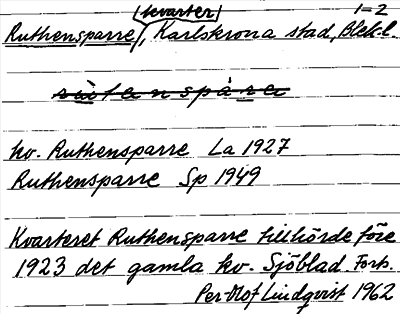 kvarter 1-2
Ruthensparre, Karlskrona stad, Blek.l.
rùtenspàre
kv. Ruthensparre La 1927
Ruthensparre Sp 1949
Kvarteret Ruthensparre tillhörde före
1923 det gamla kv. Sjöblad. Forts.
Per-Olof Lindqvist 1962